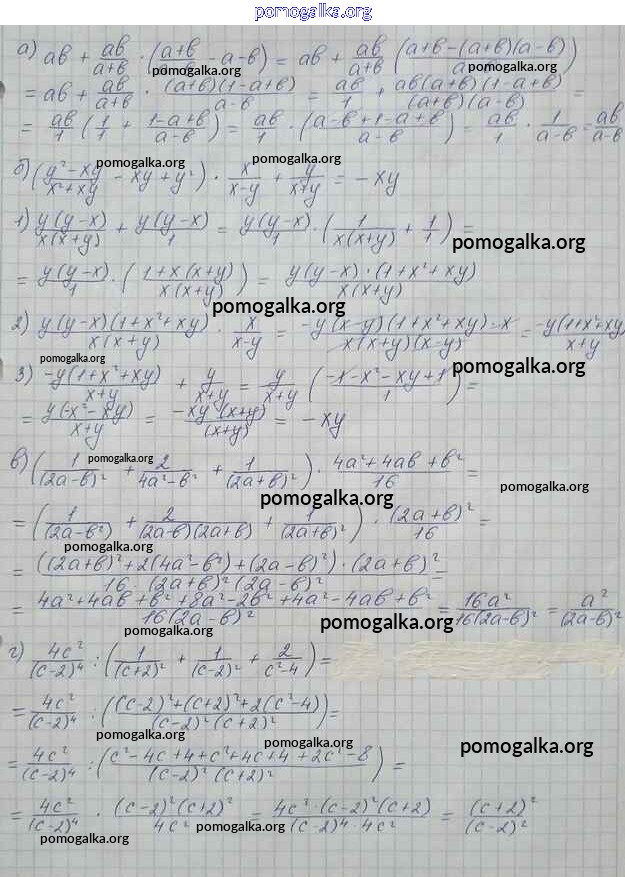 pomogalka.org
а) ab + ab/(a+b) · ((a+b)/(a-b) - a - b) = ab + ab/(a+b) ((a+b-(a+b)(a-b))/
pomogalka.org pomogalka.org
= ab + ab/(a+b) · ((a+b)(1-a+b))/(a-b) = ab/1 + (ab(a+b)(1-a+b))/((a+b)(a-b)) =
= ab/1 (1/1 + (1-a+b)/(a-b)) = ab/1 · ((a-b+1-a+b)/(a-b)) = ab/1 · 1/(a-b) = ab/(a-b)
pomogalka.org pomogalka.org
б) ((y²-xy)/(x²+xy) - xy + y²) · x/(x-y) + y/(x+y) = -xy
1) (y(y-x))/(x(x+y)) + (y(y-x))/1 = (y(y-x))/1 · (1/(x(x+y)) + 1/1) =
pomogalka.org
= (y(y-x))/1 · ((1+x(x+y))/(x(x+y))) = (y(y-x)·(1+x²+xy))/(x(x+y))
pomogalka.org
2) (y(y-x)(1+x²+xy))/(x(x+y)) · x/(x-y) = (-y(x-y)(1+x²+xy)·x)/(x(x+y)(x-y)) = (-y(1+x²+xy)/(x+y)
pomogalka.org pomogalka.org
3) (-y(1+x²+xy))/(x+y) + y/(x+y) = y/(x+y) ((-1-x²-xy+1)/1) =
= (y(-x²-xy))/(x+y) = (-xy(x+y))/((x+y)) = -xy
pomogalka.org
в) (1/(2a-b)² + 2/(4a²-b²) + 1/(2a+b)²) · (4a²+4ab+b²)/16 =
pomogalka.org pomogalka.org
= (1/(2a-b²) + 2/((2a-b)(2a+b)) + 1/(2a+b²)) · (2a+b)²/16 =
pomogalka.org
= (((2a+b)²+2(4a²-b²)+(2a-b)²)·(2a+b)²)/(16·(2a+b)²(2a-b)²) =
= (4a²+4ab+b²+8a²-2b²+4a²-4ab+b²)/(16(2a-b)²) = 16a²/(16(2a-b)²) = a²/(2a-b)²
pomogalka.org pomogalka.org
г) 4c²/(c-2)⁴ : (1/(c+2)² + 1/(c-2)² + 2/(c²-4)) =
= 4c²/(c-2)⁴ : (((c-2)²+(c+2)²+2(c²-4))/((c-2)²(c+2)²)) =
pomogalka.org pomogalka.org
= 4c²/(c-2)⁴ : ((c²-4c+4+c²+4c+4+2c²-8)/((c-2)²(c+2)²)) =
= 4c²/(c-2)⁴ · ((c-2)²(c+2)²)/4c² = (4c²·(c-2)²(c+2))/((c-2)⁴·4c²) = (c+2)²/(c-2)²
pomogalka.org pomogalka.org